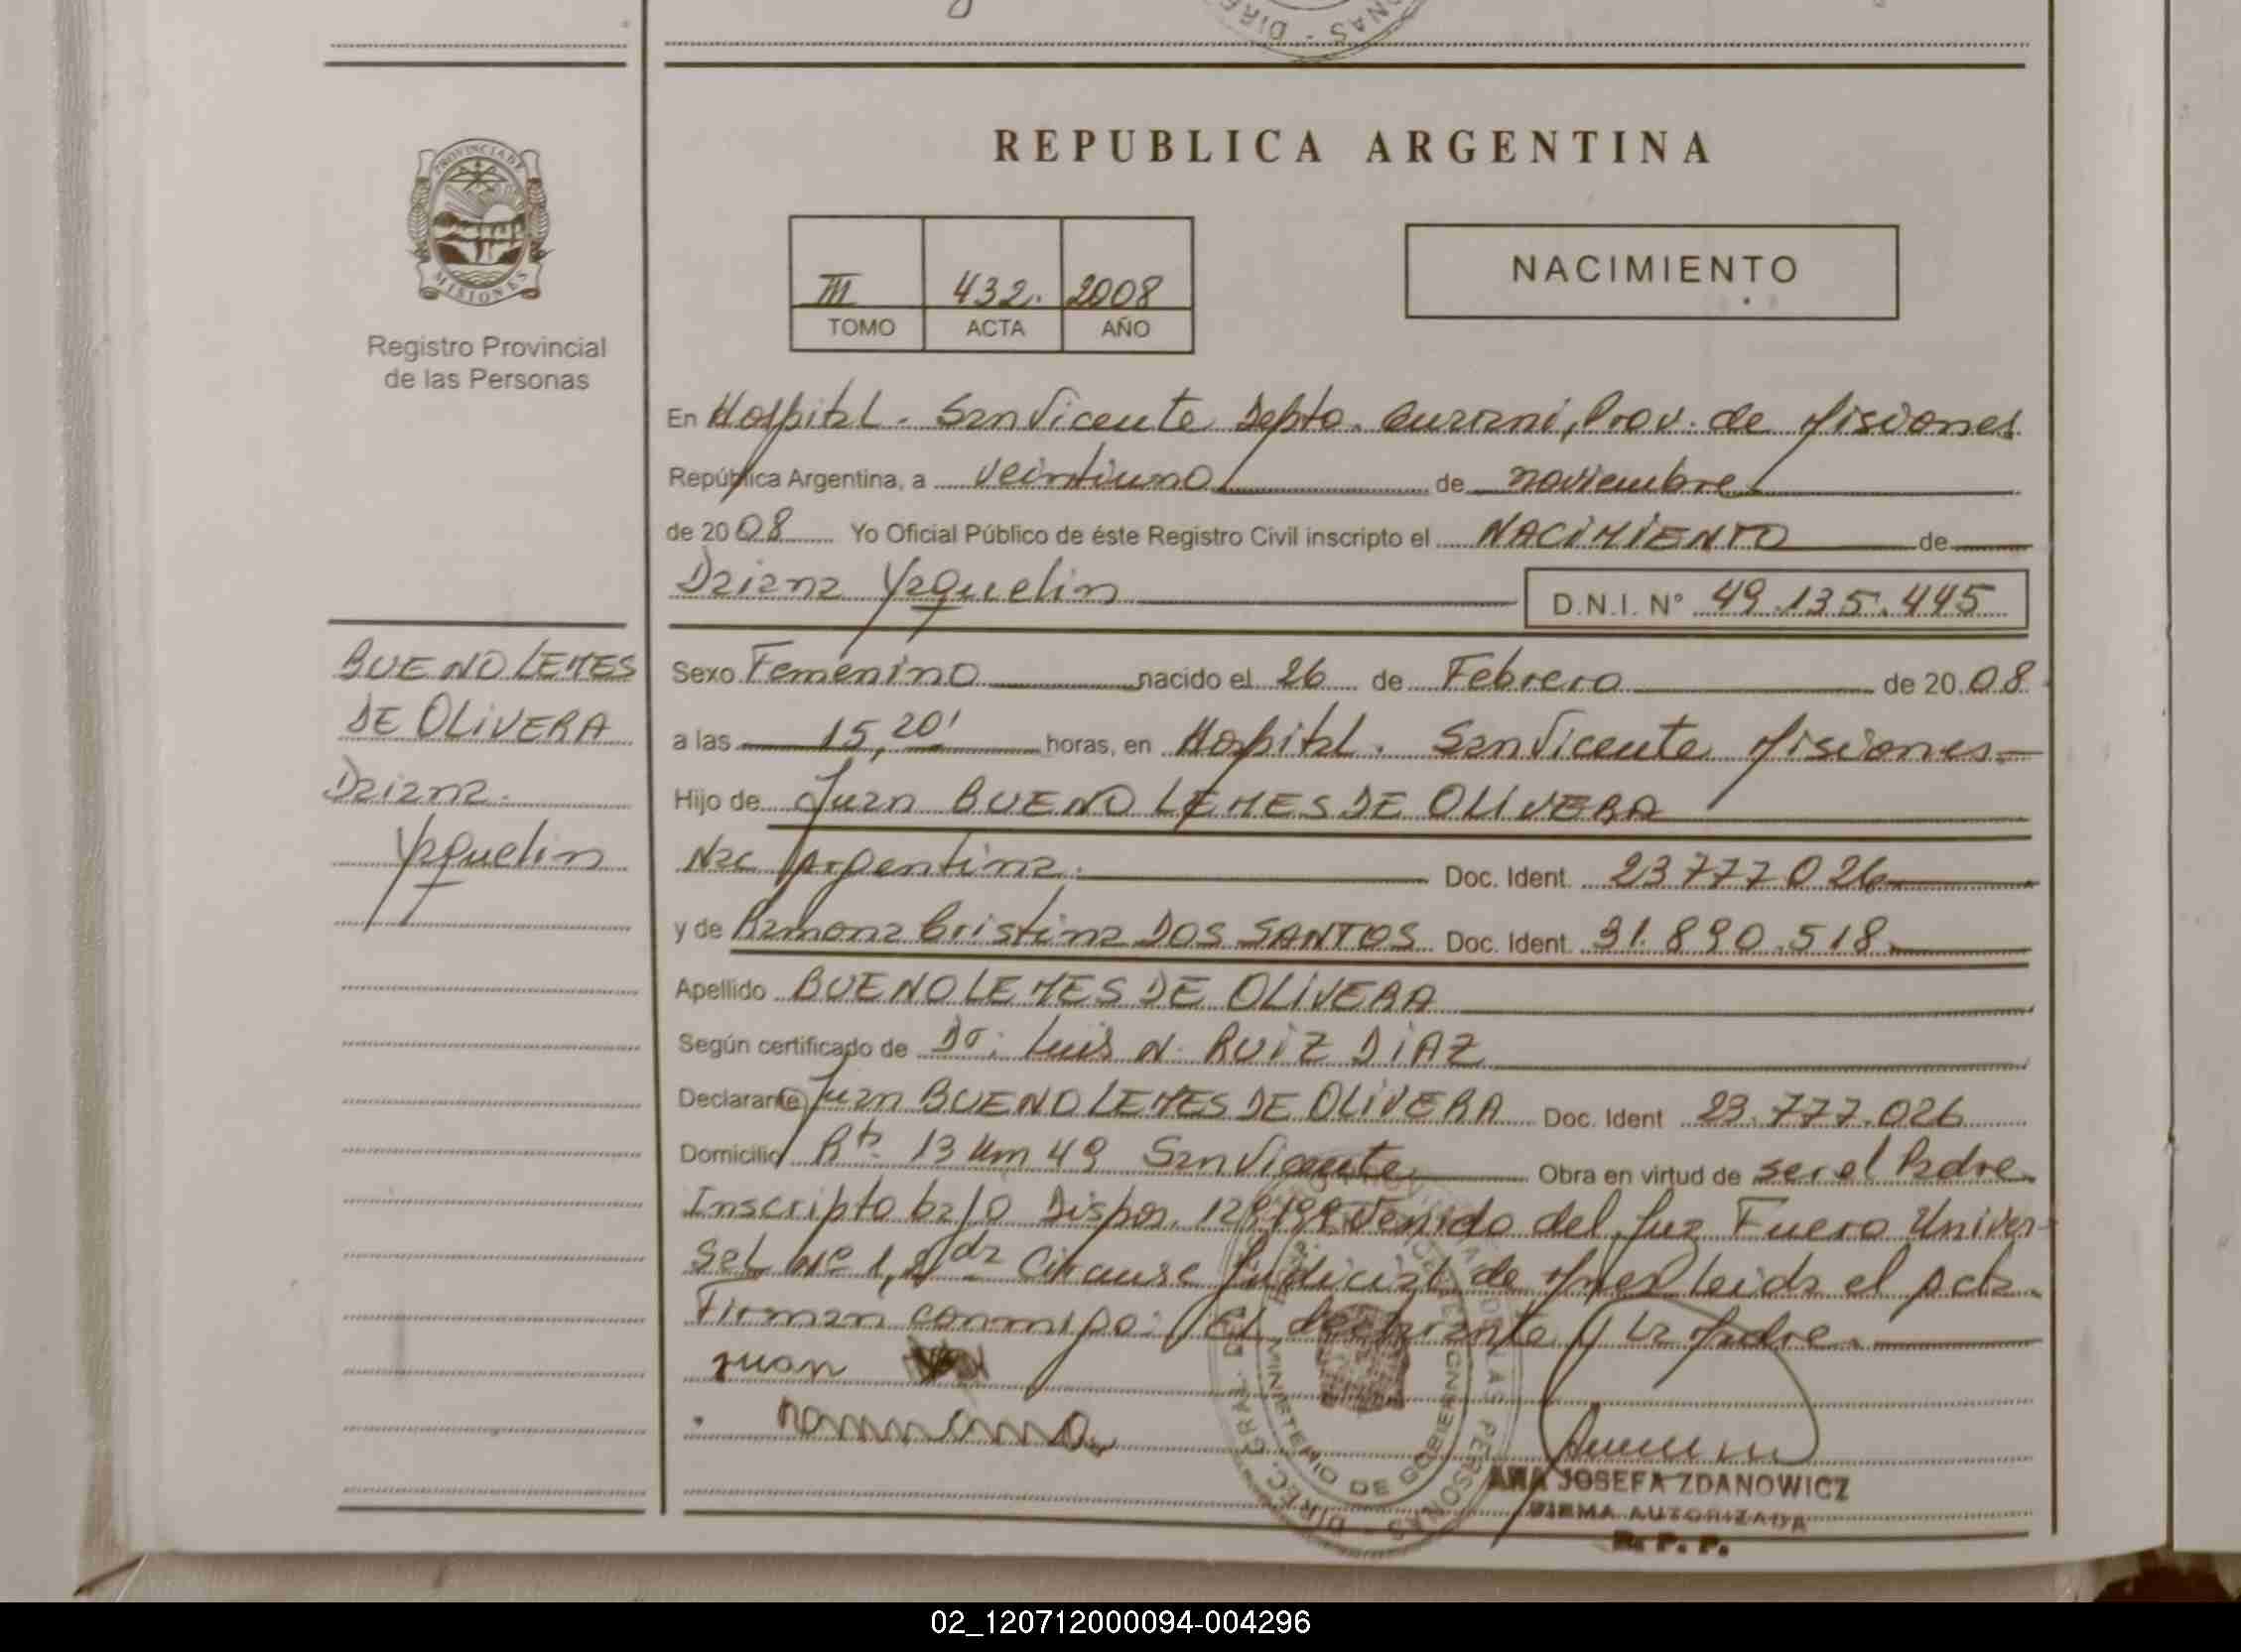 REPUBLICA ARGENTINA
PROVINCIA DE
MISIONES
Registro Provincial
de las Personas
III 432. 2008
TOMO ACTA AÑO
NACIMIENTO
En Hospital. San Vicente Depto. Guarani, Prov. de Misiones
República Argentina, a veintiuno de noviembre
de 2008 Yo Oficial Público de éste Registro Civil inscripto el NACIMIENTO de
Daiana Yaquelin D.N.I. Nº 49.135.445
BUENO LEMES
DE OLIVERA
Daiana.
Yaquelin
Sexo Femenino nacido el 26 de Febrero de 2008
a las 15,20' horas, en Hospital. San Vicente Misiones
Hijo de Juan BUENO LEMES DE OLIVERA
Nac Argentina. Doc. Ident. 23777026
y de Ramona Cristina DOS SANTOS Doc. Ident. 31.890.518
Apellido BUENO LEMES DE OLIVERA
Según certificado de Dr. Luis N. RUIZ DIAZ
Declarante Juan BUENO LEMES DE OLIVERA Doc. Ident 23.777.026
Domicilio Rta 13 Km 49 San Vicente Obra en virtud de ser el Padre
Inscripto bajo Dispos. del Juz Fuero Univer-
sal Nº 1, 2da Judicial de leida el acta.
Firman conmigo: El declarante y la Madre.
Juan
DIREC. GRAL. DE LAS PERSONAS
MINISTERIO DE GOBIERNO
ANA JOSEFA ZDANOWICZ
FIRMA AUTORIZADA
R. P. P.
02_120712000094-004296